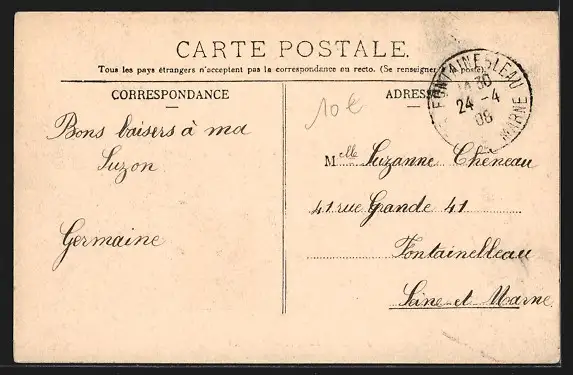 CARTE POSTALE.
Tous les pays étrangers n'acceptent pas la correspondance au recto. (Se renseigner poste)
CORRESPONDANCE
ADRESS
FONTAINEBLEAU
30
24 -4
06
MARNE
10€
Bons baisers à ma
Suzon
Germaine
Melle Suzanne Cheneau
41 rue Grande 41
Fontainelleau
Seine et Marne